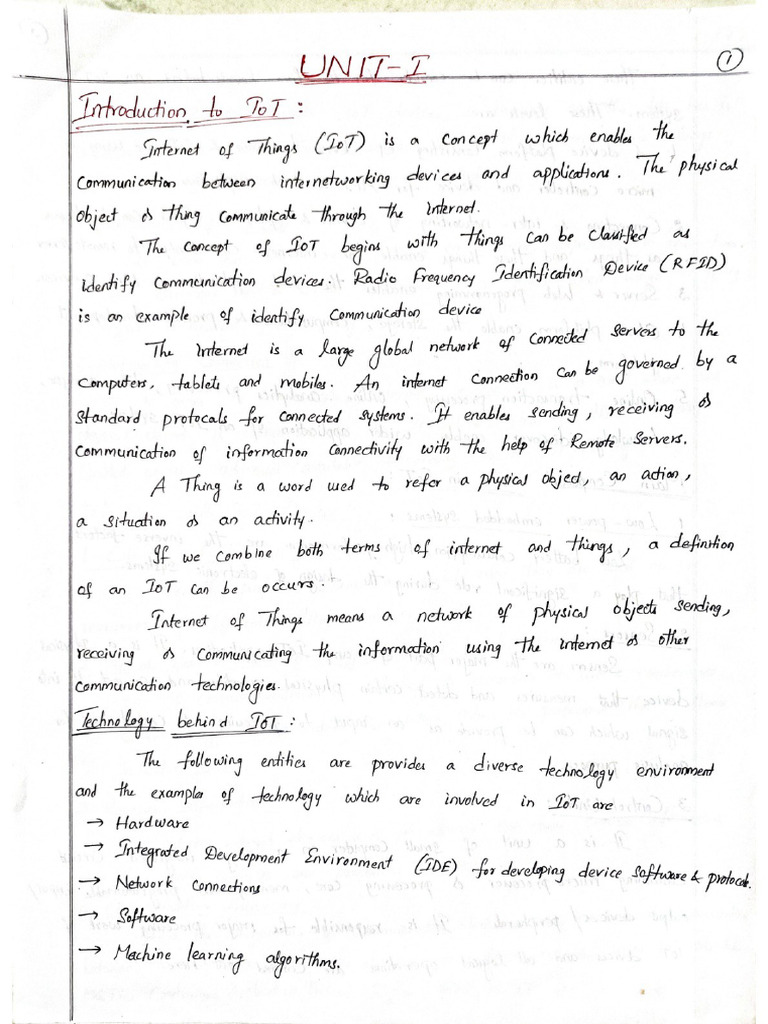 UNIT-I
1
Introduction to IoT :
Internet of Things (IoT) is a concept which enables the
Communication between internetworking devices and applications. The physical
Object or thing communicate through the internet.
The concept of IoT begins with things can be classified as
identify communication devices. Radio Frequency Identification Device (RFID)
is an example of identify communication device
The internet is a large global network of connected servers to the
Computers, tablets and mobiles. An internet connection can be governed by a
standard protocals for connected systems. It enables sending, receiving or
communication of information connectivity with the help of Remote Servers.
A Thing is a word used to refer a physical object, an action,
a situation or an activity.
If we combine both terms of internet and things, a definition
of an IoT can be occurs.
Internet of Things means a network of physical objects sending,
receiving or communicating the information using the internet or other
communication technologies.
Technology behind IoT :
The following entities are provides a diverse technology environment
and the examples of technology which are involved in IoT are
→ Hardware
→ Integrated Development Environment (IDE) for developing device software & protocols.
→ Network Connections
→ Software
→ Machine learning algorithms.